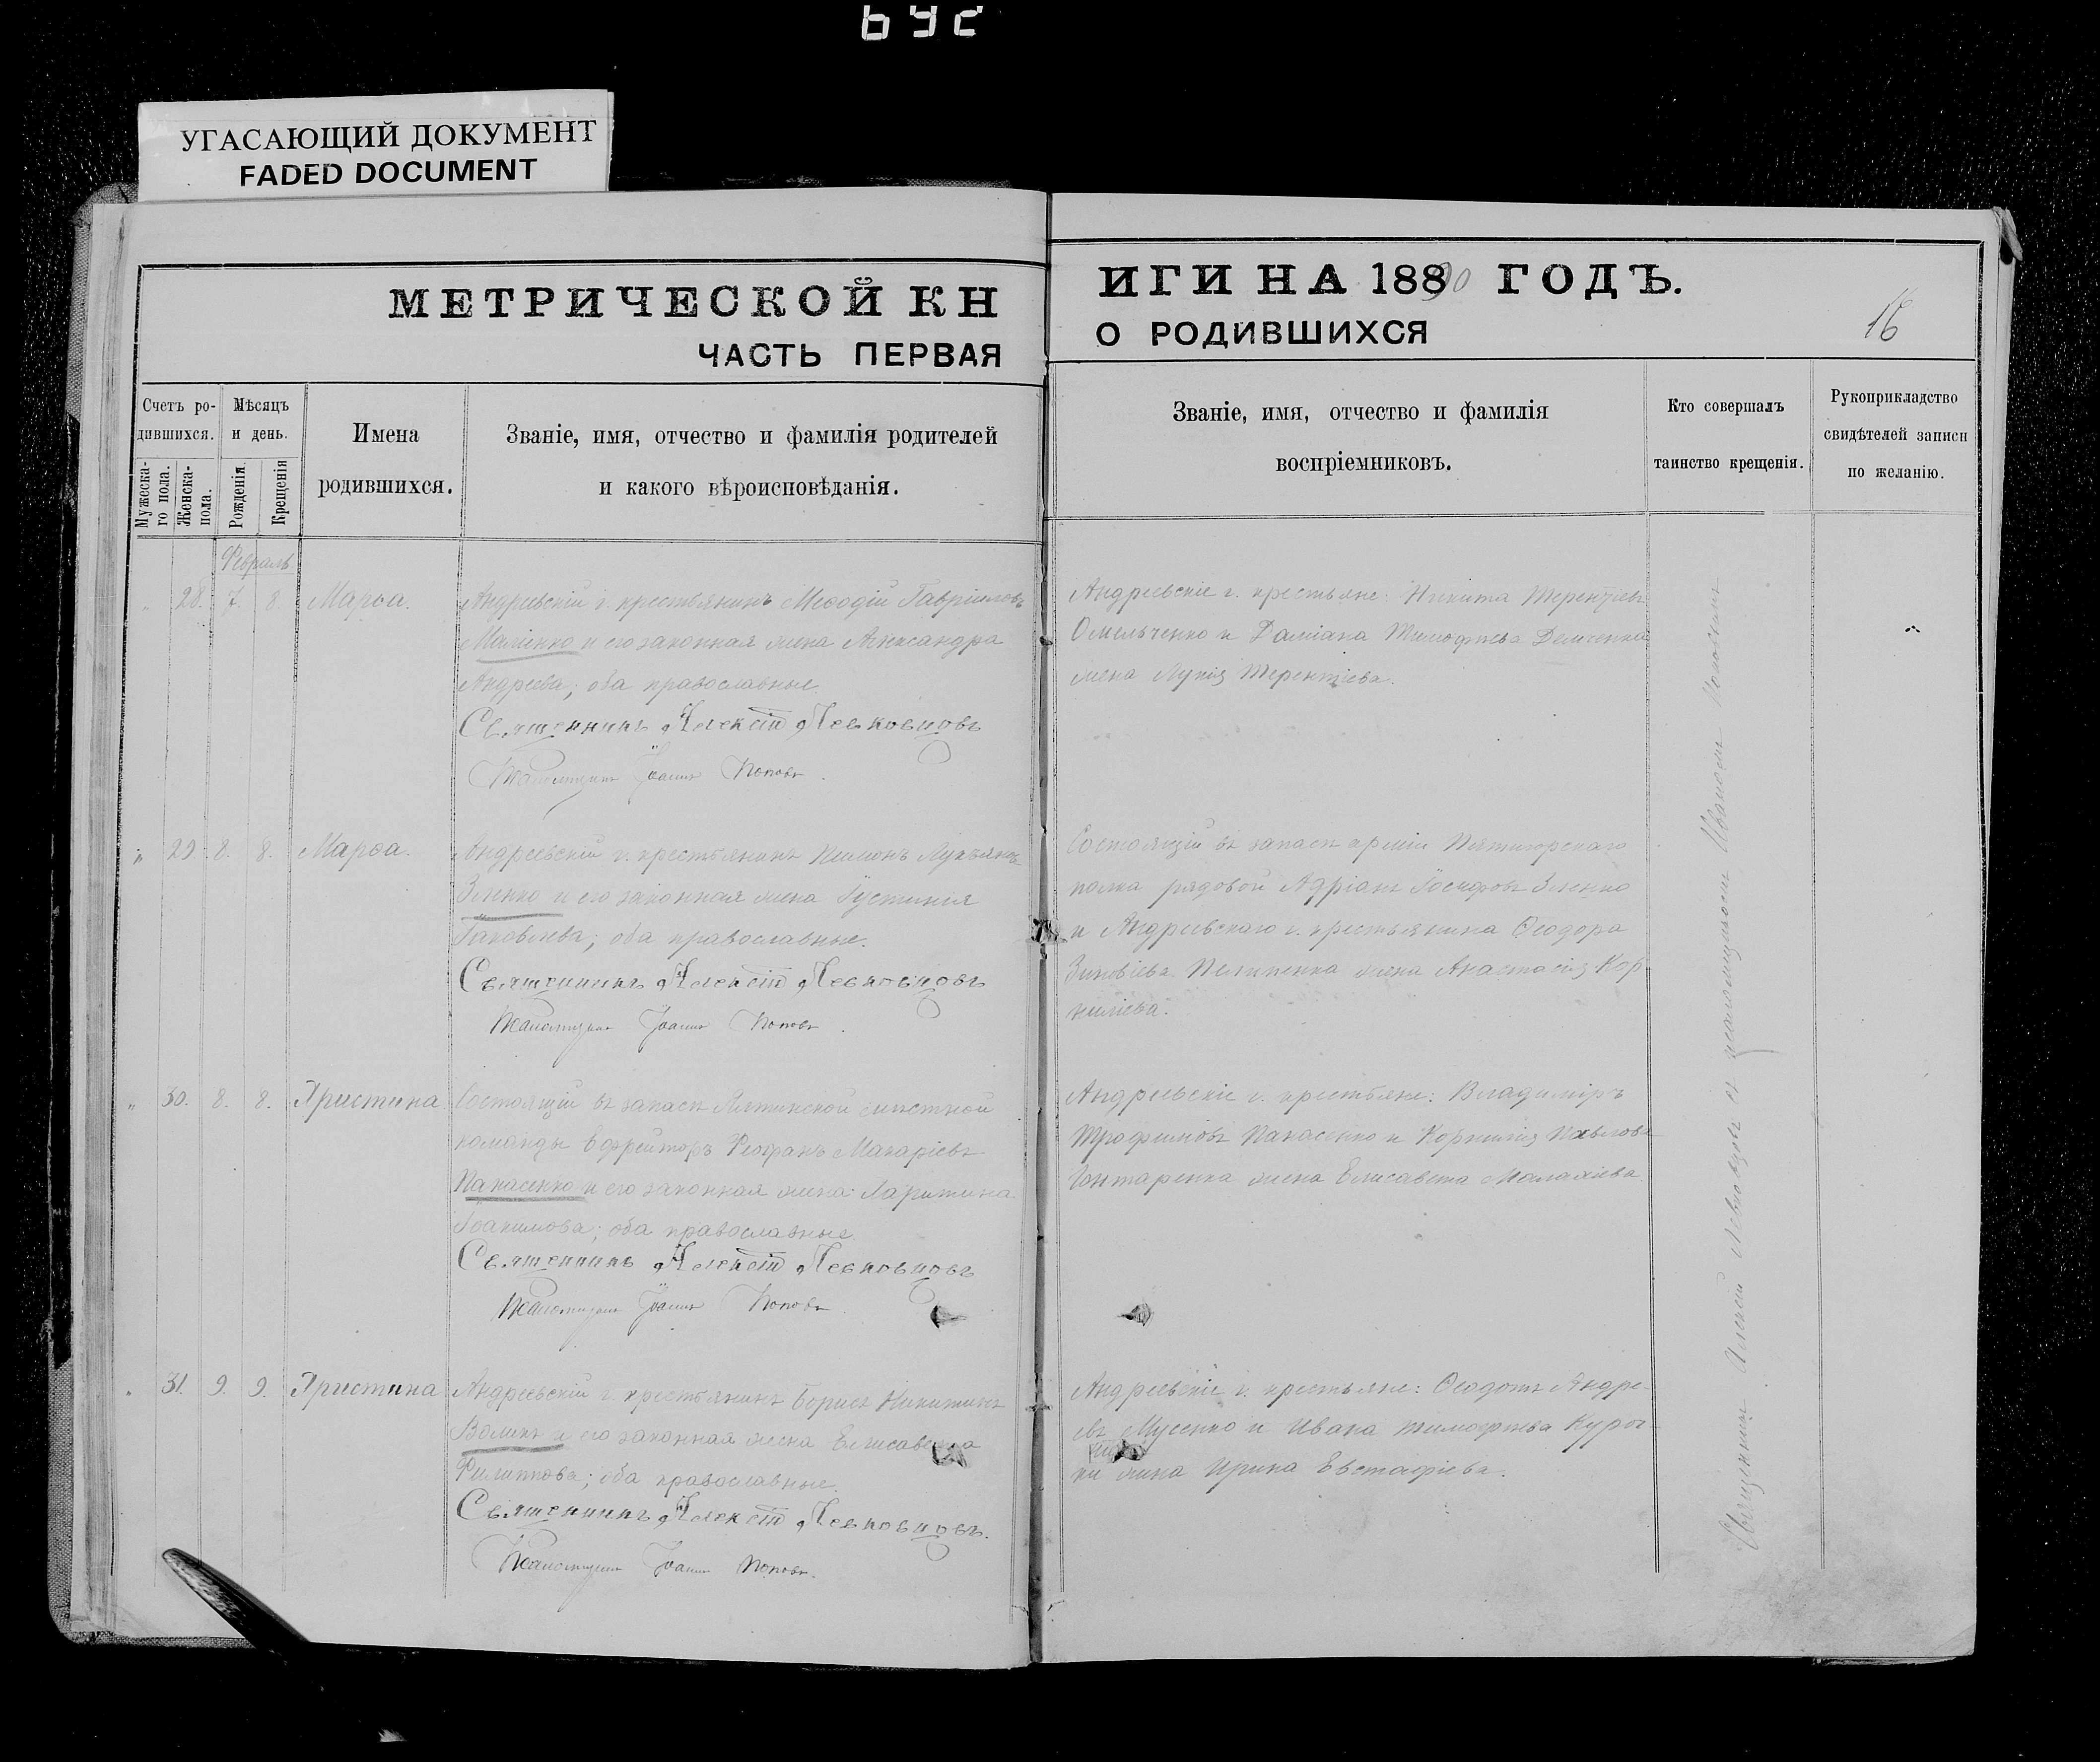 692
УГАСАЮЩИЙ ДОКУМЕНТ
FADED DOCUMENT
МЕТРИЧЕСКОЙ КН
ЧАСТЬ ПЕРВАЯ
ИГИ НА 1890 ГОДЪ.
О РОДИВШИХСЯ
16
Счетъ ро-
дившихся.
Мужеска-
го пола.
Женска-
пола.
Мѣсяцъ
и день.
Рожденія.
Крещенія
Имена
родившихся.
Званіе, имя, отчество и фамилія родителей
и какого вѣроисповѣданія.
Званіе, имя, отчество и фамилія
воспріемниковъ.
Кто совершалъ
таинство крещенія.
Рукоприкладство
свидѣтелей записи
по желанію.
Февраль
28. 7. 8. Марѳа.
Андреевскій г. крестьянинъ Меѳодій Гавріиловъ
и его законная жена Александра
Андреева; оба православные.
Священникъ Алексѣй Левковцовъ
Псаломщикъ Іоаннъ Поповъ.
Андреевскіе г. крестьяне: Никита Терентіевъ
Омельченко и Даміана Тимофѣева Демченка
жена Лукія Терентіева.
29. 8. 8. Марѳа.
Андреевскій г. крестьянинъ Пименъ Лукьяновъ
Зленко и его законная жена Іустинія
Іаковлева; оба православные.
Священникъ Алексѣй Левковцовъ
Псаломщикъ Іоаннъ Поповъ.
Состоящій въ запасѣ арміи Пятигорскаго
полка рядовой Адріанъ Іосифовъ Зленко
и Андреевскаго г. крестьянина Ѳеодора
Зиновіева Пелипенка жена Анастасія Кор-
ниліева.
30. 8. 8. Христина
Состоящій въ запасѣ Ялтинской мѣстной
команды Ефрейторъ Феофанъ Макаріевъ
Панасенко и его законная жена Харитина
Іоакимова; оба православные.
Священникъ Алексѣй Левковцовъ
Псаломщикъ Іоаннъ Поповъ.
Андреевскіе г. крестьяне: Владиміръ
Трофимовъ Панасенко и Корнилія Павлова
Гонтаренка жена Елисавета Малахіева.
31. 9. 9. Христина
Андреевскій г. крестьянинъ Борисъ Никитинъ
Воликъ и его законная жена Елисавета
Филиппова; оба православные.
Священникъ Алексѣй Левковцовъ.
Псаломщикъ Іоаннъ Поповъ.
Андреевскіе г. крестьяне: Ѳеодотъ Андре-
евъ Мусенко и Ивана Тимофѣева
жена Ирина Евстафіева.
Священникъ Алексѣй Левковцовъ съ псаломщикомъ Іоанномъ Поповымъ